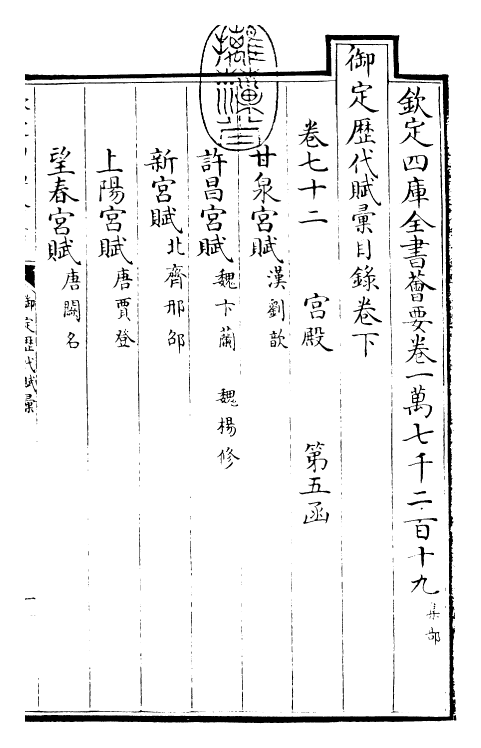 欽定四庫全書薈要卷一萬七千二百十九 集部
御定歴代賦彙目錄卷下
卷七十二 宮殿 第五函
甘泉宮賦 漢劉歆
許昌宮賦 魏卞蘭 魏楊修
新宮賦 北齊邢邵
上陽宮賦 唐賈登
望春宮賦 唐闕名
御定歴代賦彙
一